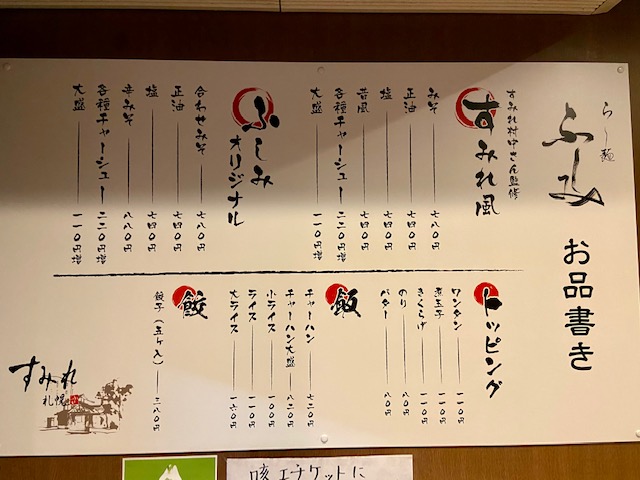 らー麺
ふしみ
お品書き
すみれ村中さん監修
すみれ風
みそ 七八〇円
正油 七四〇円
塩 七四〇円
昔風 七四〇円
各種チャーシュー 二二〇円増
大盛 一一〇円増
ふしみ
オリジナル
合わせみそ 七八〇円
正油 七四〇円
塩 七四〇円
辛みそ 八八〇円
各種チャーシュー 二二〇円増
大盛 一一〇円増
トッピング
ワンタン 一一〇円
煮玉子 一一〇円
きくらげ 一一〇円
のり 八〇円
バター 八〇円
飯
チャーハン 七二〇円
チャーハン大盛 八二〇円
小ライス 一〇〇円
ライス 一一〇円
大ライス 一六〇円
餃
餃子(五ヶ入) 三八〇円
すみれ
札幌
咳エチケットに